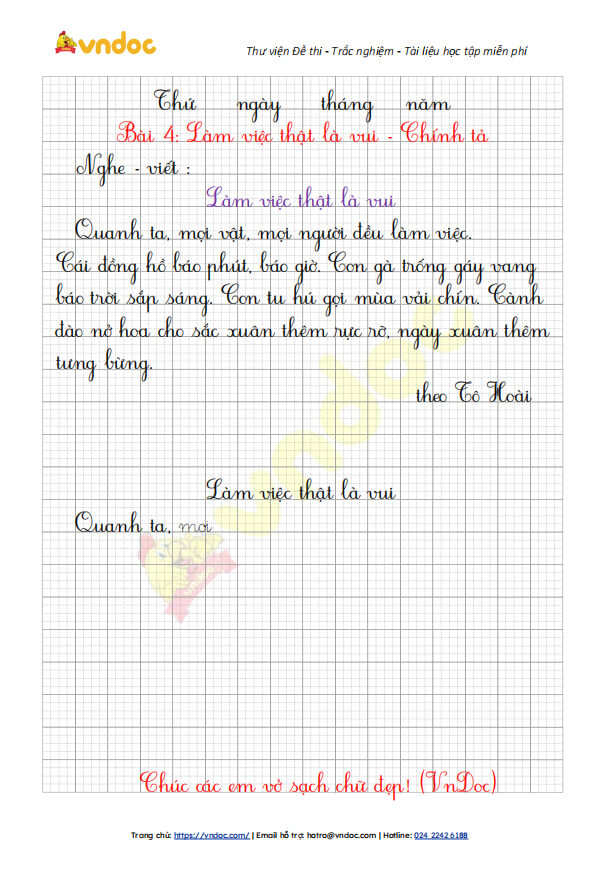 vndoc
Thư viện Đề thi - Trắc nghiệm - Tài liệu học tập miễn phí
Thứ ngày tháng năm
Bài 4: Làm việc thật là vui - Chính tả
Nghe - viết :
Làm việc thật là vui
Quanh ta, mọi vật, mọi người đều làm việc.
Cái đồng hồ báo phút, báo giờ. Con gà trống gáy vang
báo trời sắp sáng. Con tu hú gọi mùa vải chín. Cành
đào nở hoa cho sắc xuân thêm rực rỡ, ngày xuân thêm
tưng bừng.
theo Tô Hoài
vndoc
Làm việc thật là vui
Quanh ta, mọi
Chúc các em vở sạch chữ đẹp! (VnDoc)
Trang chủ: https://vndoc.com/ | Email hỗ trợ: hotro@vndoc.com | Hotline: 024 2242 6188